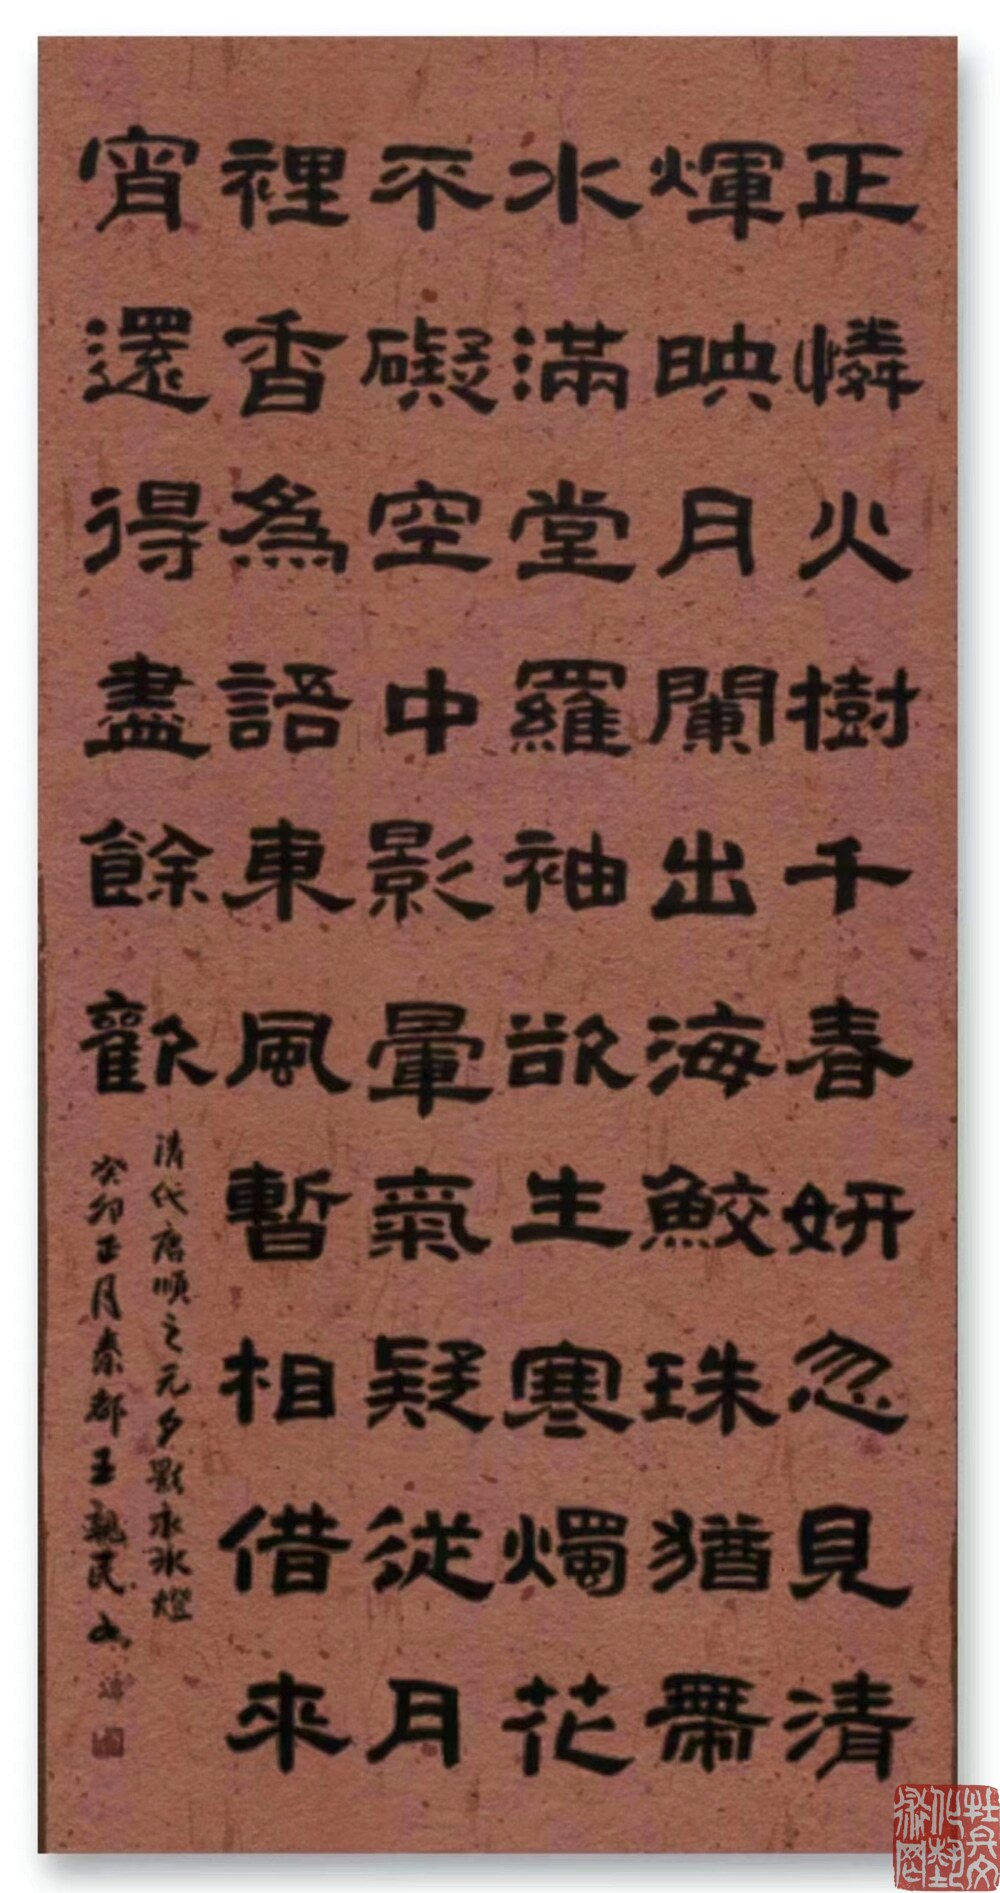 正憐火樹千春妍忽見清
輝映月闌出海鮫珠猶帶
水滿堂羅袖欲生寒燭花
不礙空中影暈氣疑從月
裡香為語東風暫相借來
宵還得盡餘歡
清代唐順之元夕影永冰燈
癸卯正月秦都王親民書